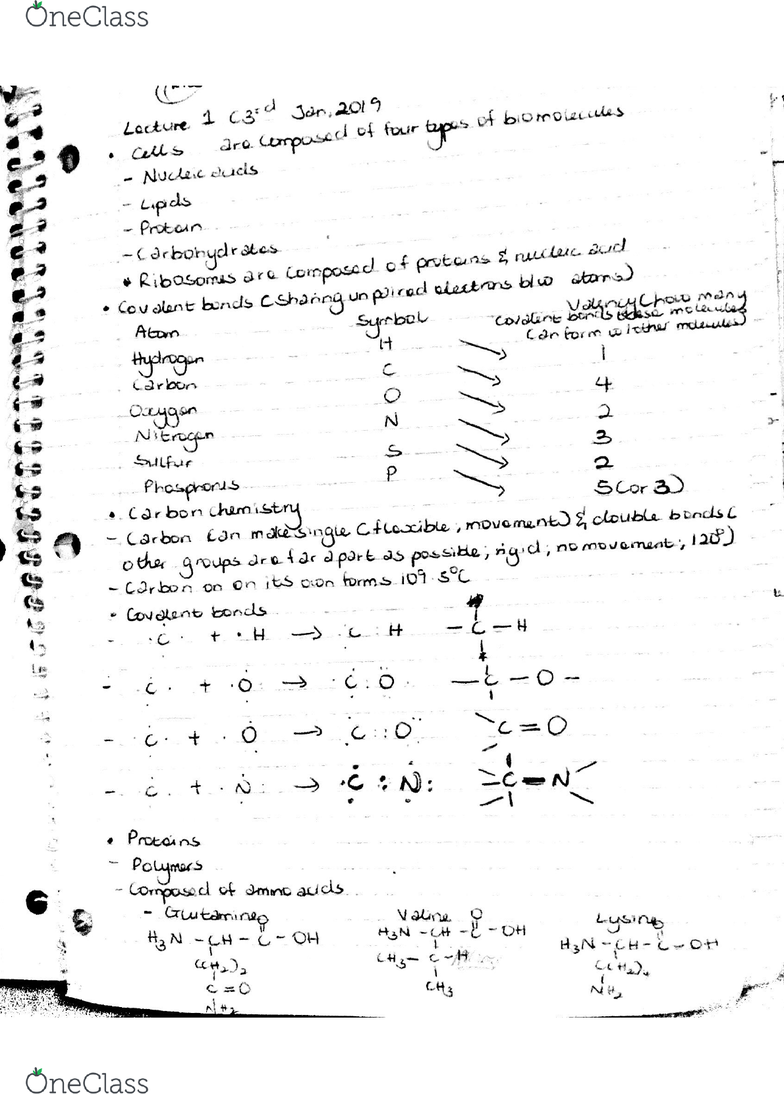 OneClass
Lecture 1 (3rd Jan, 2019
• Cells are composed of four types of biomolecules
- Nucleic acids
- Lipids
- Protein
- Carbohydrates
* Ribosomes are composed of proteins & nucleic acid
• Covalent bonds (sharing unpaired electrons b/w atoms)
Atom Symbol Valency (how many covalent bonds these molecules can form w/other molecules)
Hydrogen H → 1
Carbon C → 4
Oxygen O → 2
Nitrogen N → 3
Sulfur S → 2
Phosphorus P → 5 (or 3)
• Carbon chemistry
- Carbon can make single (flexible, movement) & double bonds (
other groups are far apart as possible; rigid; no movement; 120°)
- Carbon on on its own forms 109.5°C
• Covalent bonds
- ·C· + ·H → C : H –C–H
- ·C· + ·O: → ·C:O· –C–O–
- ·C· + ·O· → C::O C=O
- ·C· + ·N: → ·C:N: C–N
• Proteins
- Polymers
- Composed of amino acids
- Glutamine Valine Lysine
O O O
H3N–CH–C–OH H3N–CH–C–OH H3N–CH–C–OH
(CH2)2 CH3–C–H (CH2)4
C=O CH3 NH2
NH2
OneClass